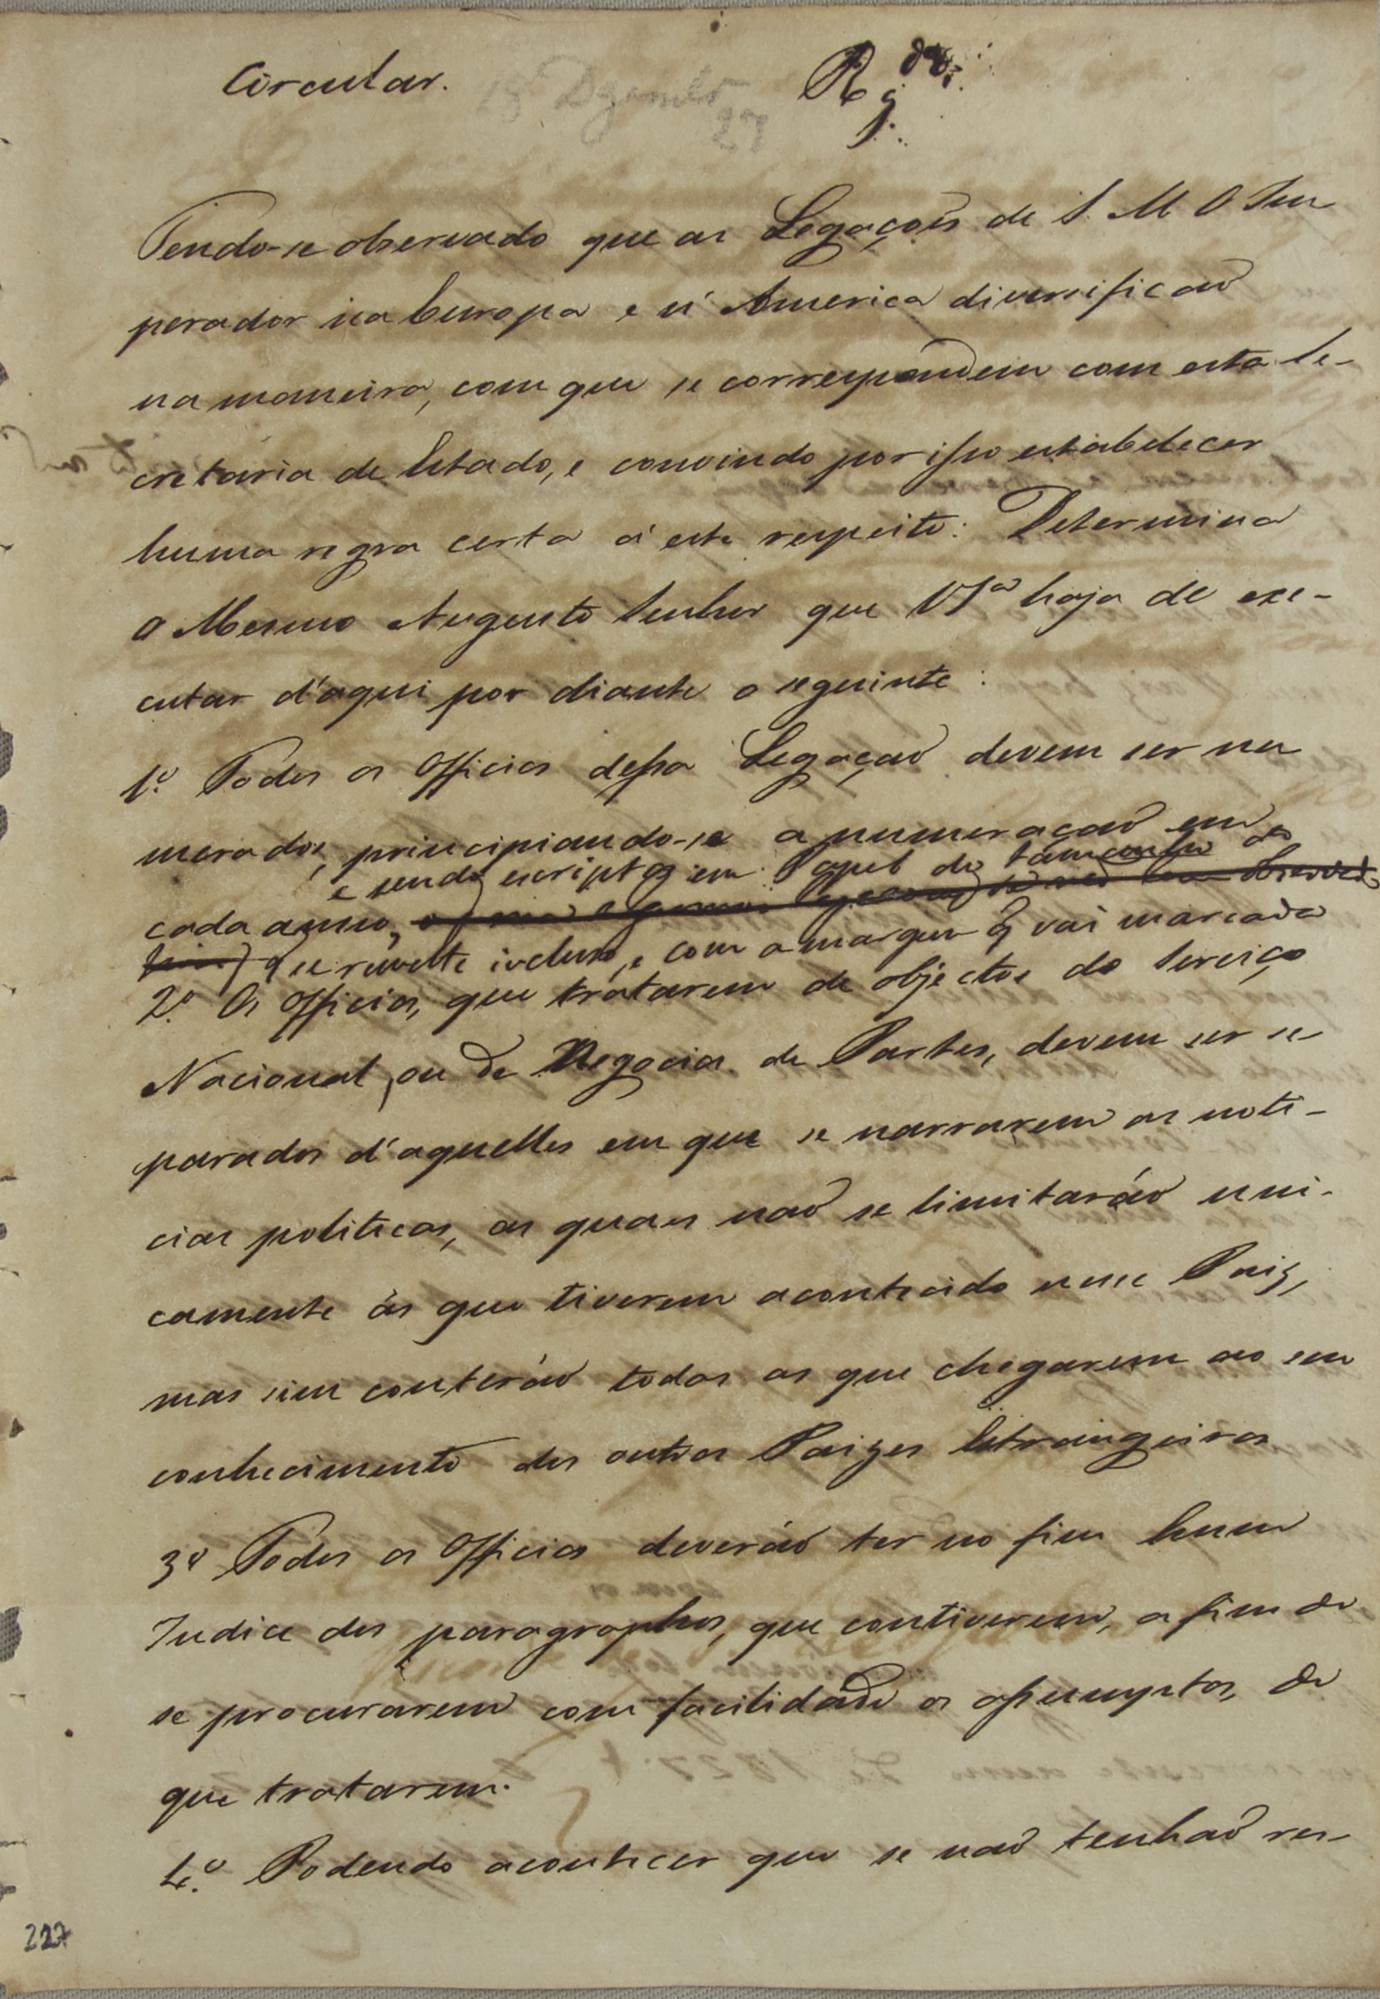 Circular.
15 Dezembro
27
Tendo-se observado que as Legações de S. M. O Im
perador na Europa e n'America diversificaõ
na maneira, com que se correspondem com esta Se-
cretaria de Estado, e convindo por isso estabelecer
huma regra certa á este respeito: Determina
O Mesmo Augusto Senhor que VSª haja de exe-
cutar d'aqui por diante o seguinte:
1º Todos os Officios dessa Legaçaõ devem ser nu
merados, principiando-se a numeraçaõ em
e sendo escriptos em Papel do tamanho do
cada anno,
q̃ se remette incluso, e com a margem q̃ vai marcada
2º Os Officios, que tratarem de objectos do Serviço
Nacional, ou de Negocios de Partes, devem ser se-
parados d'aquelles em que se narrarem as noti-
cias politicas, as quaes naõ se limitaráõ uni-
camente ás que tiverem acontecido nesse Paiz,
mas sim conteráõ todas as que chegarem ao seu
conhecimento dos outros Paizes Estrangeiros
3º Todos os Officios deveráõ ter no fim hum
Indice dos paragraphos, que contiverem, a fim de
se procurarem com facilidade os assumptos, de
que tratarem.
4º Podendo acontecer que se naõ tenhaõ res-
227